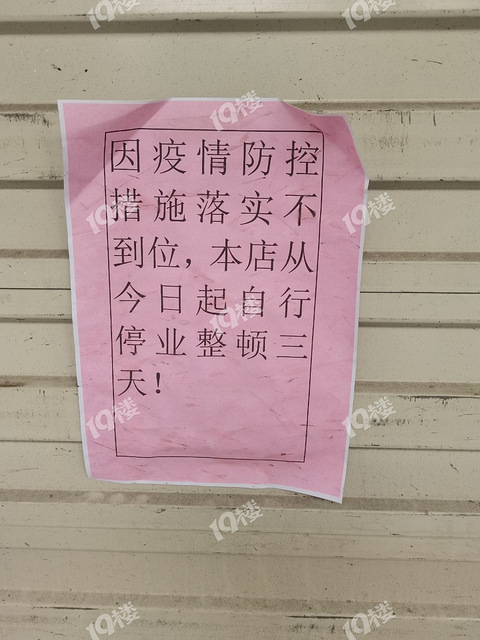 因疫情防控
措施落实不
到位，本店从
今日起自行
停业整顿三
天！
19楼
19楼
19楼
19楼
19楼
19楼
19楼
19楼
19楼
19楼
19楼